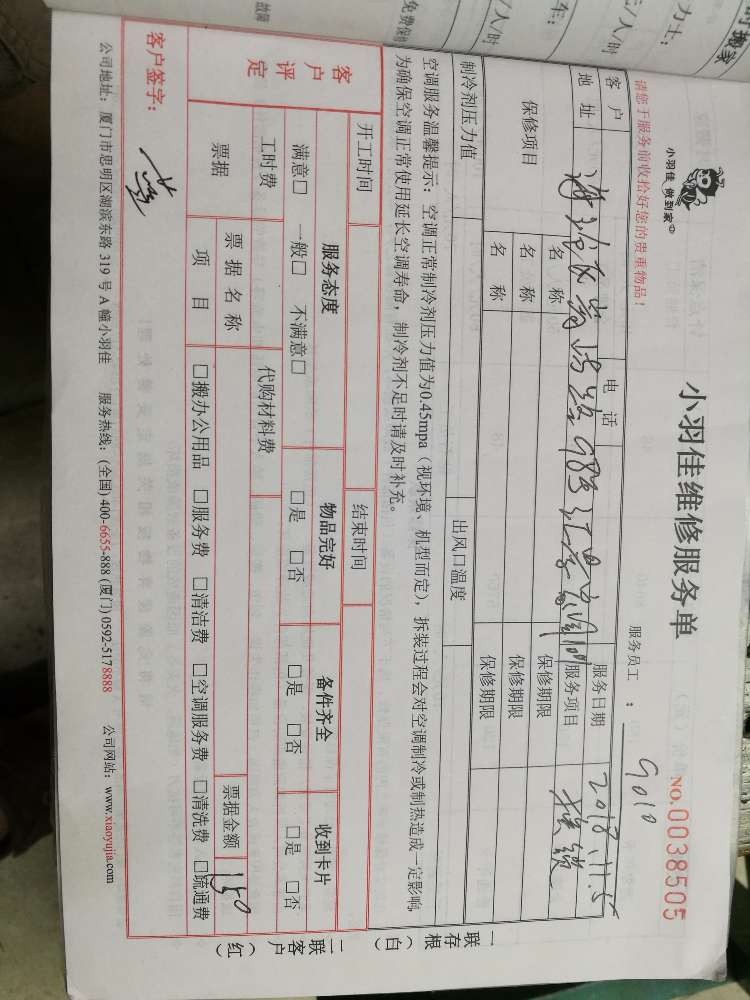 小羽佳 做到家
小羽佳维修服务单
NO.0038505
请您于服务前收拾好您的贵重物品！
服务员工 ： 9010
客 户 电 话 服务日期 2018.11.5
地 址 服务项目 换锁
保修项目 名 称 保修期限
名 称 保修期限
名 称 保修期限
制冷剂压力值 出风口温度
空调服务温馨提示：空调正常制冷剂压力值为0.45mpa（视环境、机型而定），拆装过程会对空调制冷或制热造成一定影响
为确保空调正常使用延长空调寿命，制冷剂不足时请及时补充。
开工时间 结束时间
客户评定 服务态度 物品完好 备件齐全 收到卡片
满意□ 一般□ 不满意□ □是 □否 □是 □否 □是 □否
工时费 代购材料费
票据 票 据 名 称 票据金额 150
项 目 □搬办公用品 □服务费 □清洁费 □空调服务费 □清洗费 □疏通费
客户签字：
公司地址：厦门市思明区湖滨东路 319 号 A 幢小羽佳 服务热线：(全国) 400-6655-888 (厦门) 0592-5178888 公司网站：www.xiaoyujia.com
一联存根（白）
二联客户（红）